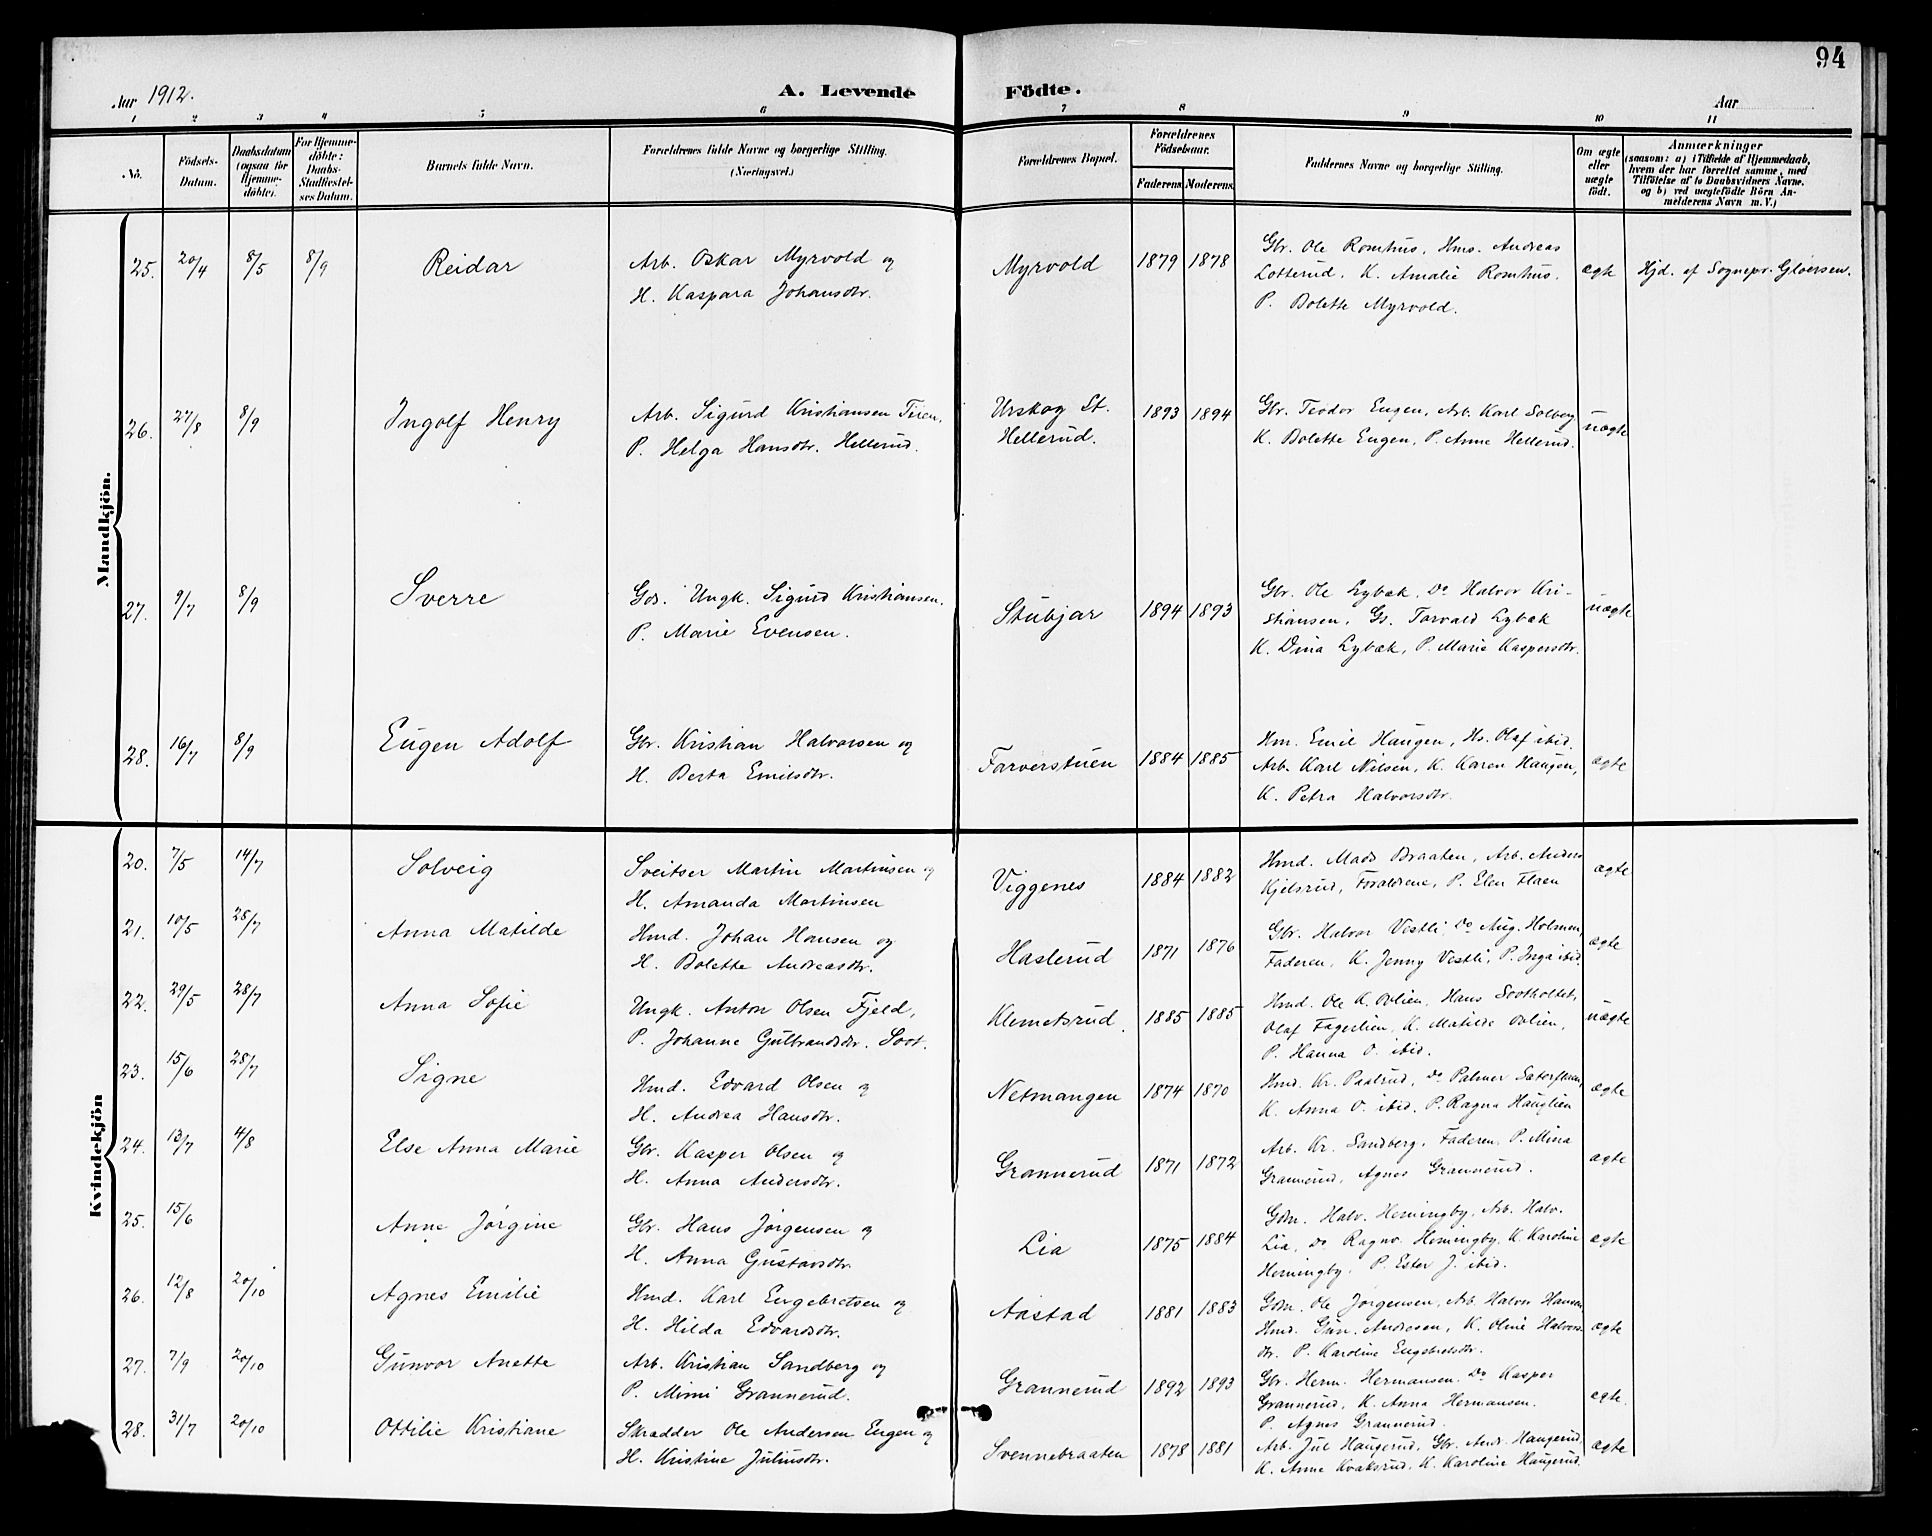 94
Aar 1912. A. Levende Födte. Aar
1 2 3 4 5 6 7 8 9 10 11
No.
Födsels-
Datum.
Daabsdatum
(ogsaa for
Hjemme-
döbte).
For Hjemme-
döbte:
Daabs-
Stadfæstel-
ses Datum.
Barnets fulde Navn.
Forældrenes fulde Navne og borgerlige Stilling.
(Næringsvei.)
Forældrenes Bopæl.
Forældrenes
Födselsaar.
Faderens Moderens
Faddernes Navne og borgerlige Stilling.
Om ægte
eller
uægte
födt.
Anmærkninger
(saasom: a) i Tilfælde af Hjemmedaab,
hvem der har forrettet samme, med
Tilföielse af to Daabsvidners Navne,
og b) ved uægtefödte Börn An-
melderens Navn m. V.)
Mandkjön.
25. 20/4 8/5 8/9 Reidar
Arb. Oskar Myrvold og
H. Kaspara Johansdtr.
Myrvold 1879 1878
Gbr. Ole Romhus, Hms. Andreas
Lotterud, K. Amalie Romhus.
P. Bolette Myrvold.
ægte
Hjd. af Sognepr. Gloersen.
26. 27/8 8/9 Ingolf Henry
Arb. Sigurd Kristiansen Teien,
P. Helga Hansdtr. Hellerud.
Urskog St.
Hellerud.
1893 1894
Gbr. Teodor Eugen, Arb. Karl Solberg
K. Bolette Eugen, P. Anne Hellerud.
uægte
27. 9/7 8/9 Sverre
Gds. Ungk. Sigurd Kristiansen.
P. Marie Evensen.
Stubjar 1894 1893
Gbr. Ole Lybæk, Do Halvor Kri-
stiansen, Gs. Torvald Lybæk
K. Dina Lybæk, P. Marie Kaspersdtr.
uægte
28. 16/7 8/9 Eugen Adolf
Gbr. Kristian Halvorsen og
H. Berta Emilsdtr.
Farverstuen 1884 1885
Hm. Emil Haugen, Hs. Olaf ibid.
Arb. Karl Nilsen, K. Karen Haugen,
K. Petra Halvorsdtr.
ægte
Kvindekjön
20. 7/5 14/7 Solveig
Sveitser Martin Martinsen og
H. Amanda Martinsen
Viggenes 1884 1882
Hmd. Mads Braaten, Arb. Anders
Kjelsrud, Forældrene, P. Elen Flaen
ægte
21. 10/5 28/7 Anna Matilde
Hmd. Johan Hansen og
H. Bolette Andreasdtr.
Haslerud 1871 1876
Gbr. Halvor Vestli, Do Aug. Holmen,
Faderen, K. Jenny Vestli, P. Inga ibid.
ægte
22. 29/5 28/7 Anna Sofie
Ungk. Anton Olsen Fjeld,
P. Johanne Gulbrandsdtr. Soot.
Klemetsrud. 1885 1885
Hmd. Ole K. Ovlien, Hans Sootholtet,
Olaf Fagerlien, K. Matilde Ovlien,
P. Hanna O. ibid.
uægte
23. 15/6 28/7 Signe
Hmd. Edvard Olsen og
H. Andrea Hansdtr.
Netmangen 1874 1870
Hmd. Kr. Paalrud, Do Palmer Sæterflaen,
K. Anna O. ibid. P. Ragna Hauglien
ægte
24. 13/7 4/8 Else Anna Marie
Gbr. Kasper Olsen og
H. Anna Andersdtr.
Grannerud 1871 1872
Arb. Kr. Sandberg, Faderen, P. Mina
Grannerud, Agnes Grannerud.
ægte
25. 15/6 Anne Jørgine
Gbr. Hans Jørgensen og
H. Anna Gustavsdtr.
Lia 1875 1884
Gdm. Halv. Hemingby, Arb. Halv.
Lia, Do Ragnv. Hemingby, K. Karoline
Hemingby, P. Ester J. ibid.
ægte
26. 12/8 20/10 Agnes Emilie
Hmd. Karl Engebretsen og
H. Hilda Edvardsdtr.
Aastad 1881 1883
Gdm. Ole Jørgensen, Arb. Halvor Hansen
Hmd. Gun. Andresen, K. Oline Halvors-
dtr. P. Karoline Engebretsdtr.
ægte
27. 7/9 20/10 Gunvor Anette
Arb. Kristian Sandberg og
P. Mimi Grannerud.
Grannerud 1892 1893
Gbr. Herm. Hermansen. Do Kasper
Grannerud, K. Anna Hermansen.
P. Agnes Grannerud.
ægte.
28. 31/7 20/10 Ottilie Kristiane
Skrædder Ole Andersen Eugen og
H. Kristine Juliusdtr.
Svennebraaten 1878 1881
Arb. Jul Haugerud, Gbr. Andr. Haugerud,
K. Anne Kvaksrud, K. Karoline Haugerud.
ægte